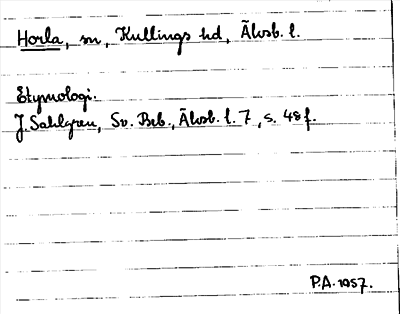 Horla, sn, Kullings hd, Älvsb. l.
Etymologi:
J. Sahlgren, Sv. Beb., Älvsb. l. 7, s. 48 f.
P.A. 1957.